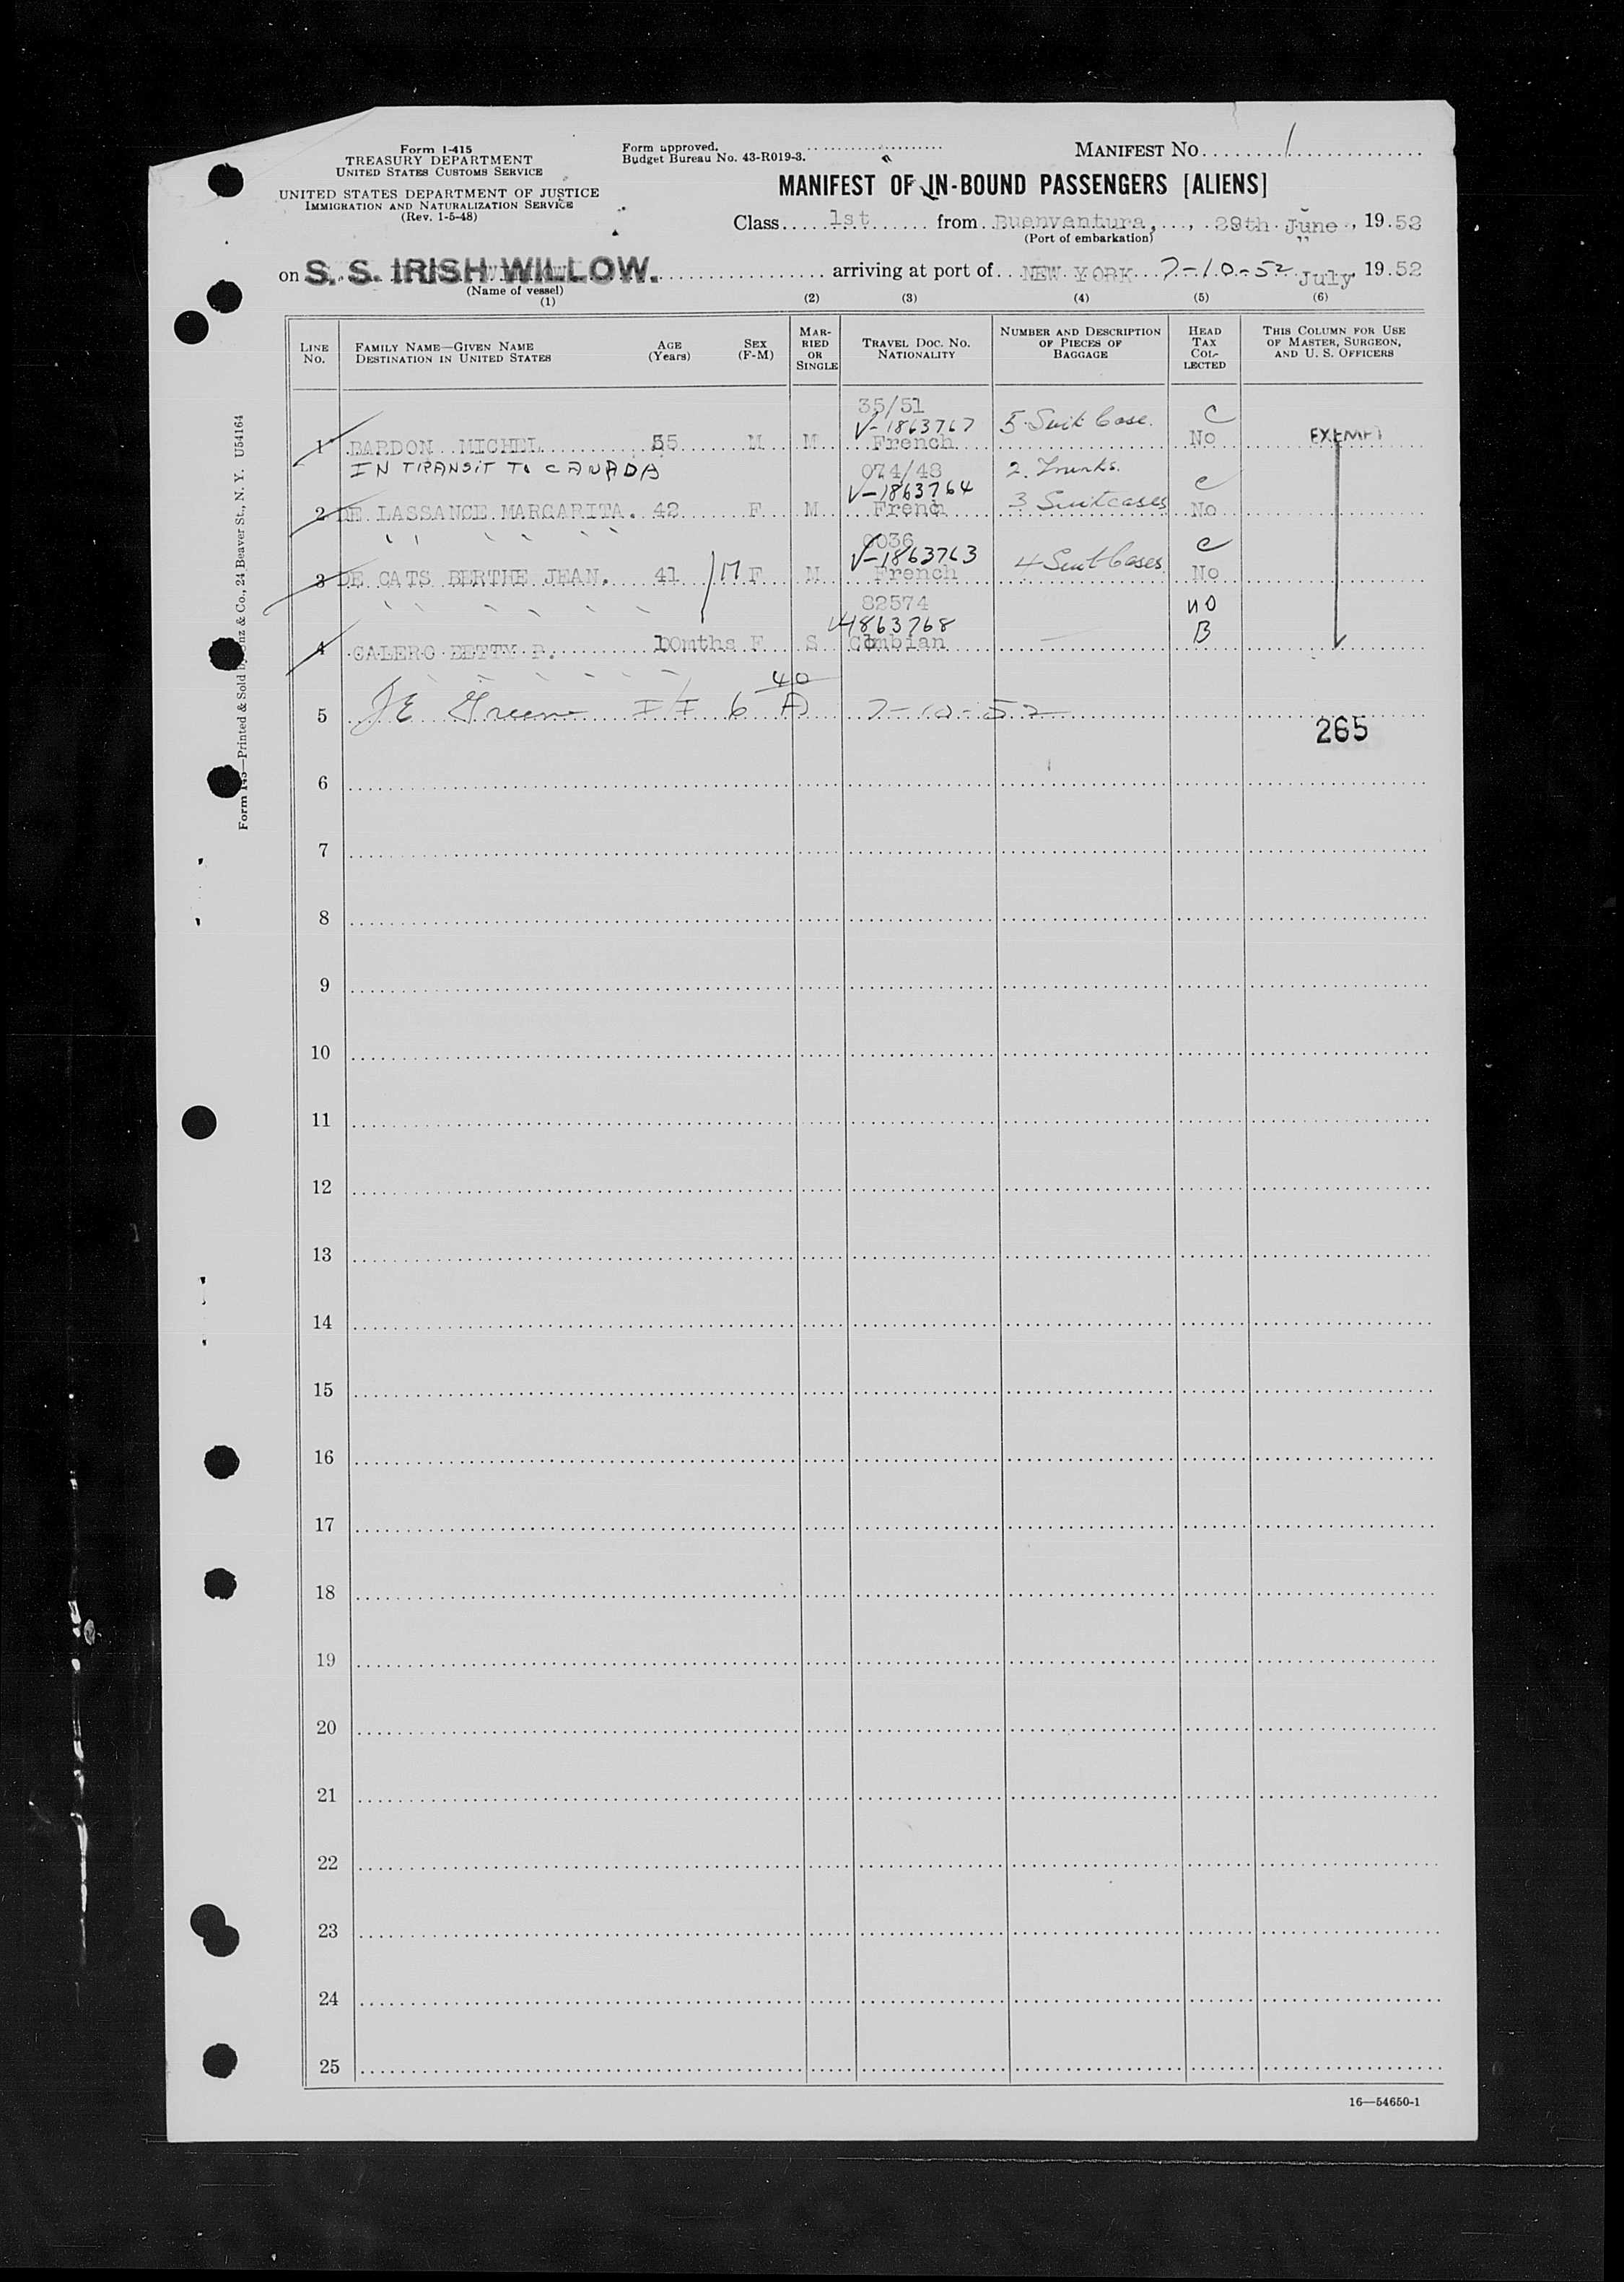 Form I-415
TREASURY DEPARTMENT
UNITED STATES CUSTOMS SERVICE
UNITED STATES DEPARTMENT OF JUSTICE
IMMIGRATION AND NATURALIZATION SERVICE
(Rev. 1-5-48)
Form approved.
Budget Bureau No. 43-R019-3.
MANIFEST NO. 1
MANIFEST OF IN-BOUND PASSENGERS [ALIENS]
Class 1st from Buenventura, 29th June, 1952
(Port of embarkation)
on S. S. IRISH WILLOW. arriving at port of NEW YORK 7-10-52 July, 1952
(Name of vessel)
(1) (2) (3) (4) (5) (6)
LINE NO.
FAMILY NAME—GIVEN NAME
DESTINATION IN UNITED STATES
AGE (Years)
SEX (F-M)
MARRIED OR SINGLE
TRAVEL DOC. NO.
NATIONALITY
NUMBER AND DESCRIPTION OF PIECES OF BAGGAGE
HEAD TAX COLLECTED
THIS COLUMN FOR USE OF MASTER, SURGEON, AND U. S. OFFICERS
35/51
V-1863767 5 Suit Case. C
1 BARDON MICHEL 55 M M French No EXEMPT
IN TRANSIT TO CANADA 074/48 2. Trunks.
V-1863764 C
2 DE LASSANCE MARGARITA. 42 F M French 3 Suitcases No
" " " " "
0036
V-1863763 C
3 DE CATS BERTHE JEAN. 41 M F M French 4 Suit Cases No
" " " " " "
82574 NO
V-1863768 B
4 CALERO BETTY P. 10mths F S Colmbian
" " " " " "
40
5 JE Greene I I 6 A 7-10-52
265
6
7
8
9
10
11
12
13
14
15
16
17
18
19
20
21
22
23
24
25
16—54650-1
Form 143—Printed & Sold by Unz & Co., 24 Beaver St., N. Y. U54164